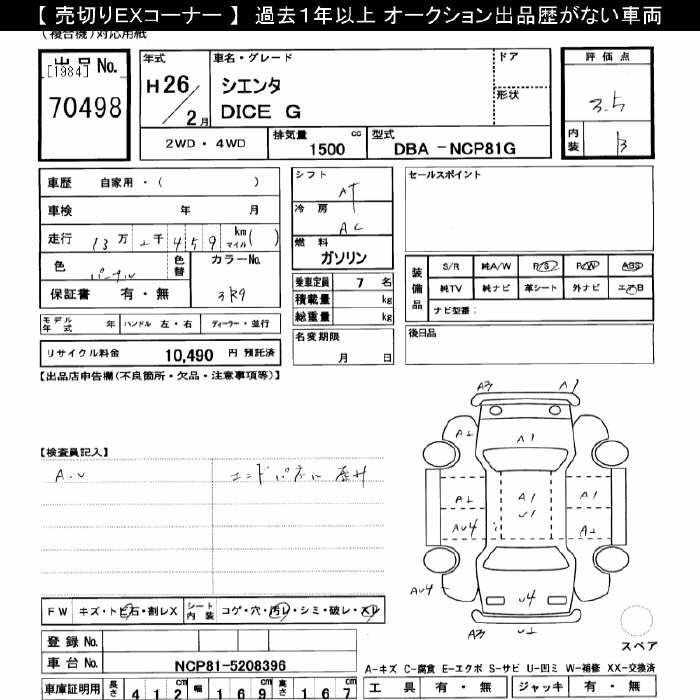 【 売切りEXコーナー 】 過去1年以上 オークション出品歴がない車両
(複合機)対応用紙
出品 No.
[1984]
70498
年式
H26/2月
車名・グレード
シエンタ
DICE G
ドア
形状
評価点
3.5
内装
B
2WD・4WD
排気量 cc
1500
型式
DBA -NCP81G
車歴 自家用・( )
車検 年 月
走行 13万2千459 km マイル( )
色 パープル 色替 カラーNo.
3R9
保証書 有・無
シフト
AT
冷房
AC
燃料
ガソリン
乗車定員 7 名
積載量 kg
総重量 kg
セールスポイント
装備品
S/R 純A/W P/S P/W ABS
純TV 純ナビ 革シート 外ナビ エアB
ナビ型番:
モデル年式 年 ハンドル 左・右 ディーラー・並行
名変期限
月 日
後日品
リサイクル料金 10,490 円 預託済
【出品店申告欄(不良箇所・欠品・注意事項等)】
【検査員記入】
A.U
エンドパネル 歪サ
A3 A1
A2 A1
A2 A1 A1
U1
AU4 A2
AU4 U4
A3 U2
スペア
FW キズ・トビ石・割レX シート内装 コゲ・穴・汚レ・シミ・破レ・スレ
登録 No.
車台 No. NCP81-5208396
車庫証明用 長さ 412 幅 169 高さ 167
A-キズ C-腐食 E-エクボ S-サビ U-凹ミ W-補修 XX-交換済
工具 有・無 ジャッキ 有・無